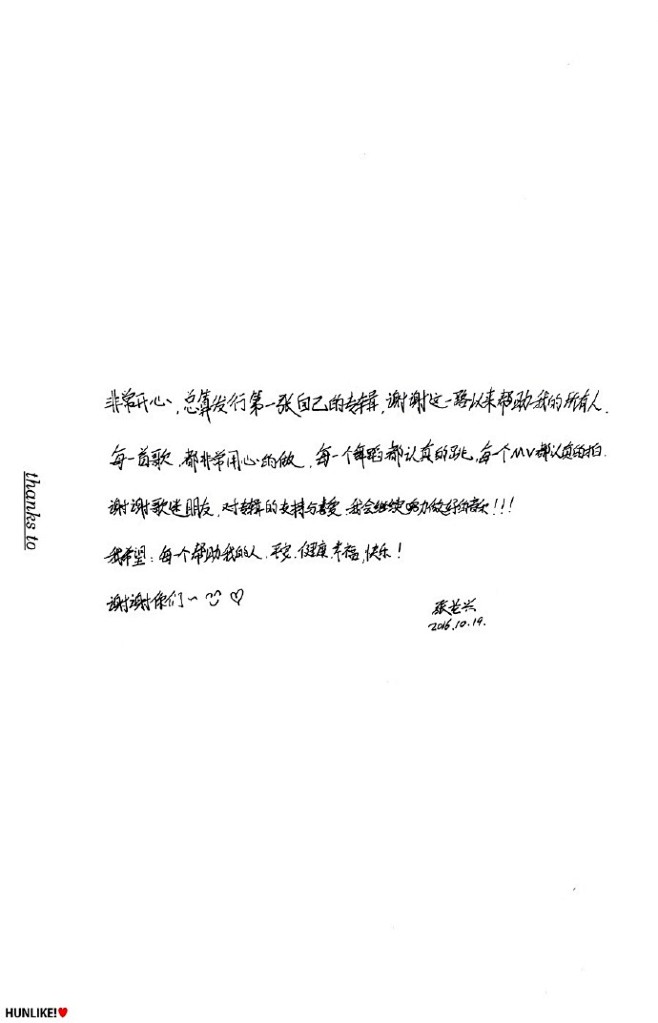 非常开心,总算发行第一张自己的专辑,谢谢这一路以来帮助我的所有人.
每一首歌,都非常用心的做,每一个舞蹈都认真的跳,每个MV都认真的拍.
谢谢歌迷朋友,对专辑的支持与喜爱,我会继续努力做好音乐!!!
我希望:每个帮助我的人,平安,健康,幸福,快乐!
谢谢你们~ ♡
张艺兴
2016.10.19.
thanks to
HUNLIKE!